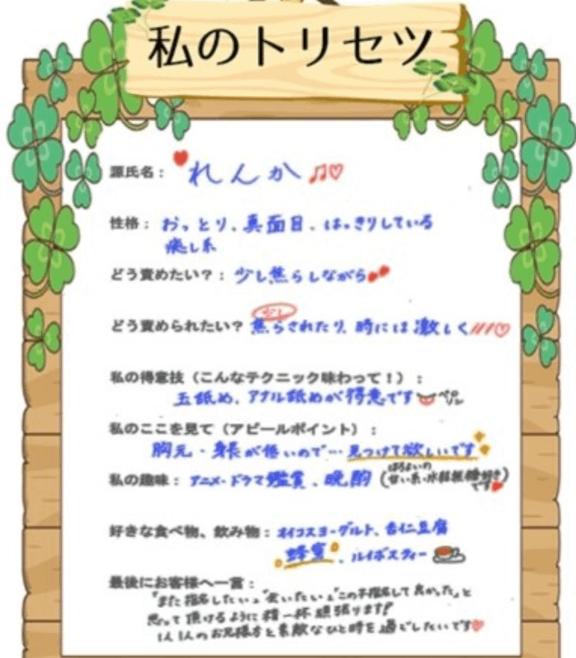 私のトリセツ
源氏名: れんか♫♡
性格: おっとり、真面目、はっきりしている
癒し系
どう責めたい?: 少し焦らしながら
少し
どう責められたい? 焦らされたり、時には激しく///♡
私の得意技(こんなテクニック味わって!):
玉舐め、アナル舐めが得意です ペロッ
私のここを見て(アピールポイント):
胸元・身長が低いので…見つけて欲しいです
私の趣味: アニメ・ドラマ鑑賞、晩酌(ほろよいの
甘い系・水結無糖好き)
です
好きな食べ物、飲み物: オイコスヨーグルト、杏仁豆腐
蜂蜜、ルイボスティー
最後にお客様へ一言:
"また指名したい。""会いたい。""この子指名して良かった。"と
思って頂けるように精一杯頑張ります!
1人1人のお兄様方と素敵なひと時を過ごしたいです♡